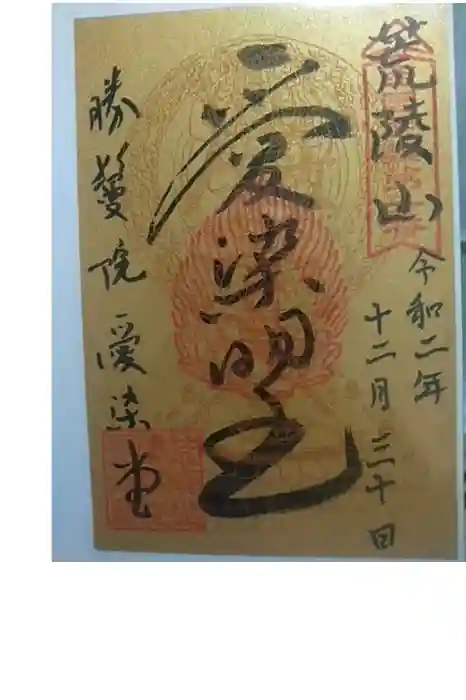 荒陵山
令和二年
十二月三十日
愛染明王
勝鬘院愛染堂